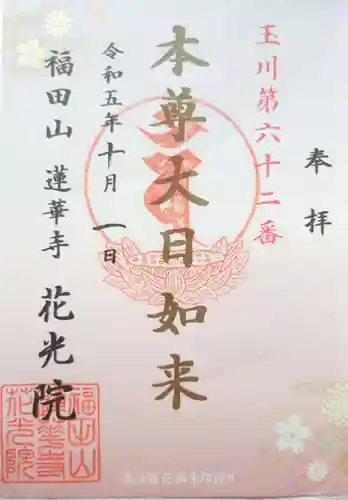 奉拝
玉川第六十二番
本尊大日如来
令和五年十月一日
福田山 蓮華寺 花光院
福田山
蓮華寺
花光院